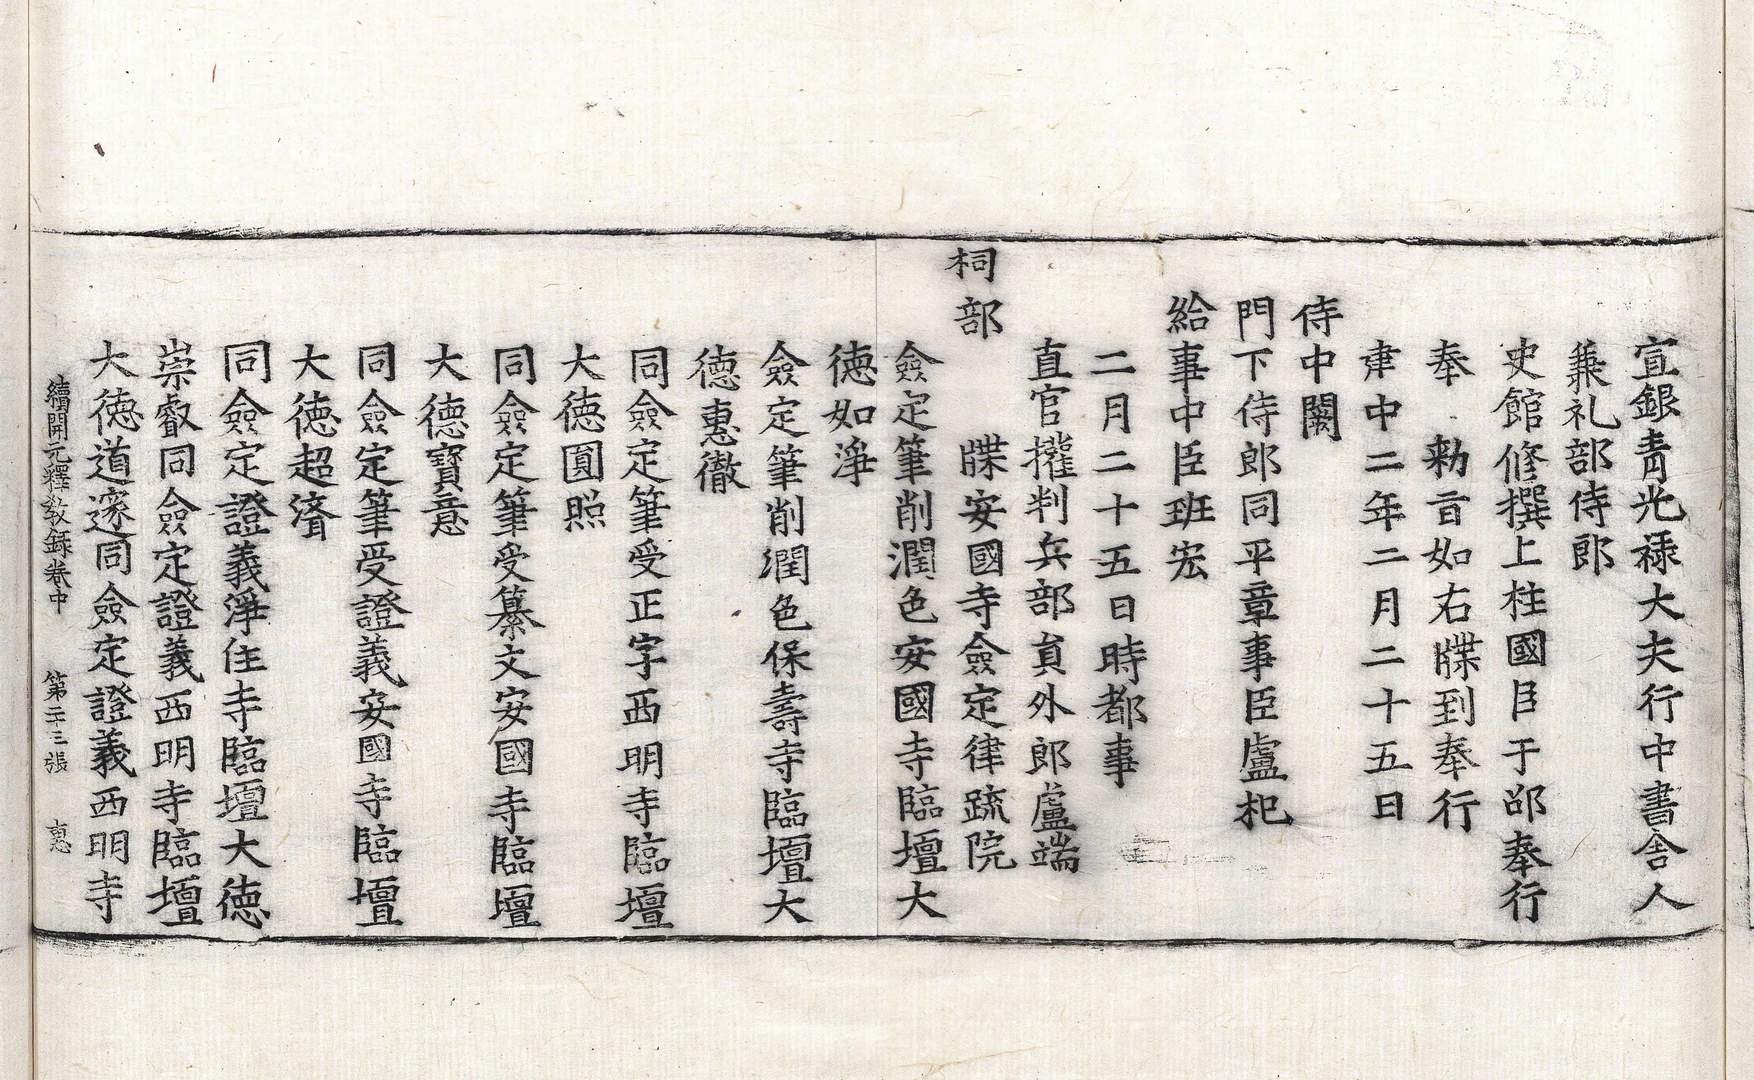 宣銀青光禄大夫行中書舎人
兼礼部侍郎
史館修撰上柱國臣于邵奉行
奉　勑旨如右牒到奉行
建中二年二月二十五日
侍中闕
門下侍郎同平章事臣盧杞
給事中臣班宏
二月二十五日時都事
直官㩲判兵部員外郎盧端
祠部　　牒安國寺僉定律疏院
僉定筆削潤色安國寺臨壇大
徳如淨
僉定筆削潤色保壽寺臨壇大
徳惠徹
同僉定筆受正字西明寺臨壇
大徳圓照
同僉定筆受纂文安國寺臨壇
大徳寶意
同僉定筆受證義安國寺臨壇
大徳超濟
同僉定證義淨住寺臨壇大徳
崇叡同僉定證義西明寺臨壇
大徳道邃同僉定證義西明寺
續開元釋教録巻中　第二十三張　惠